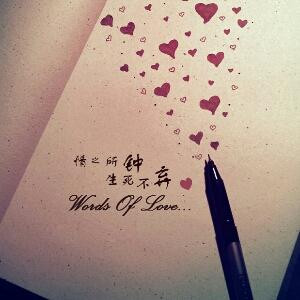 情之所钟
生死不弃
Words Of Love...